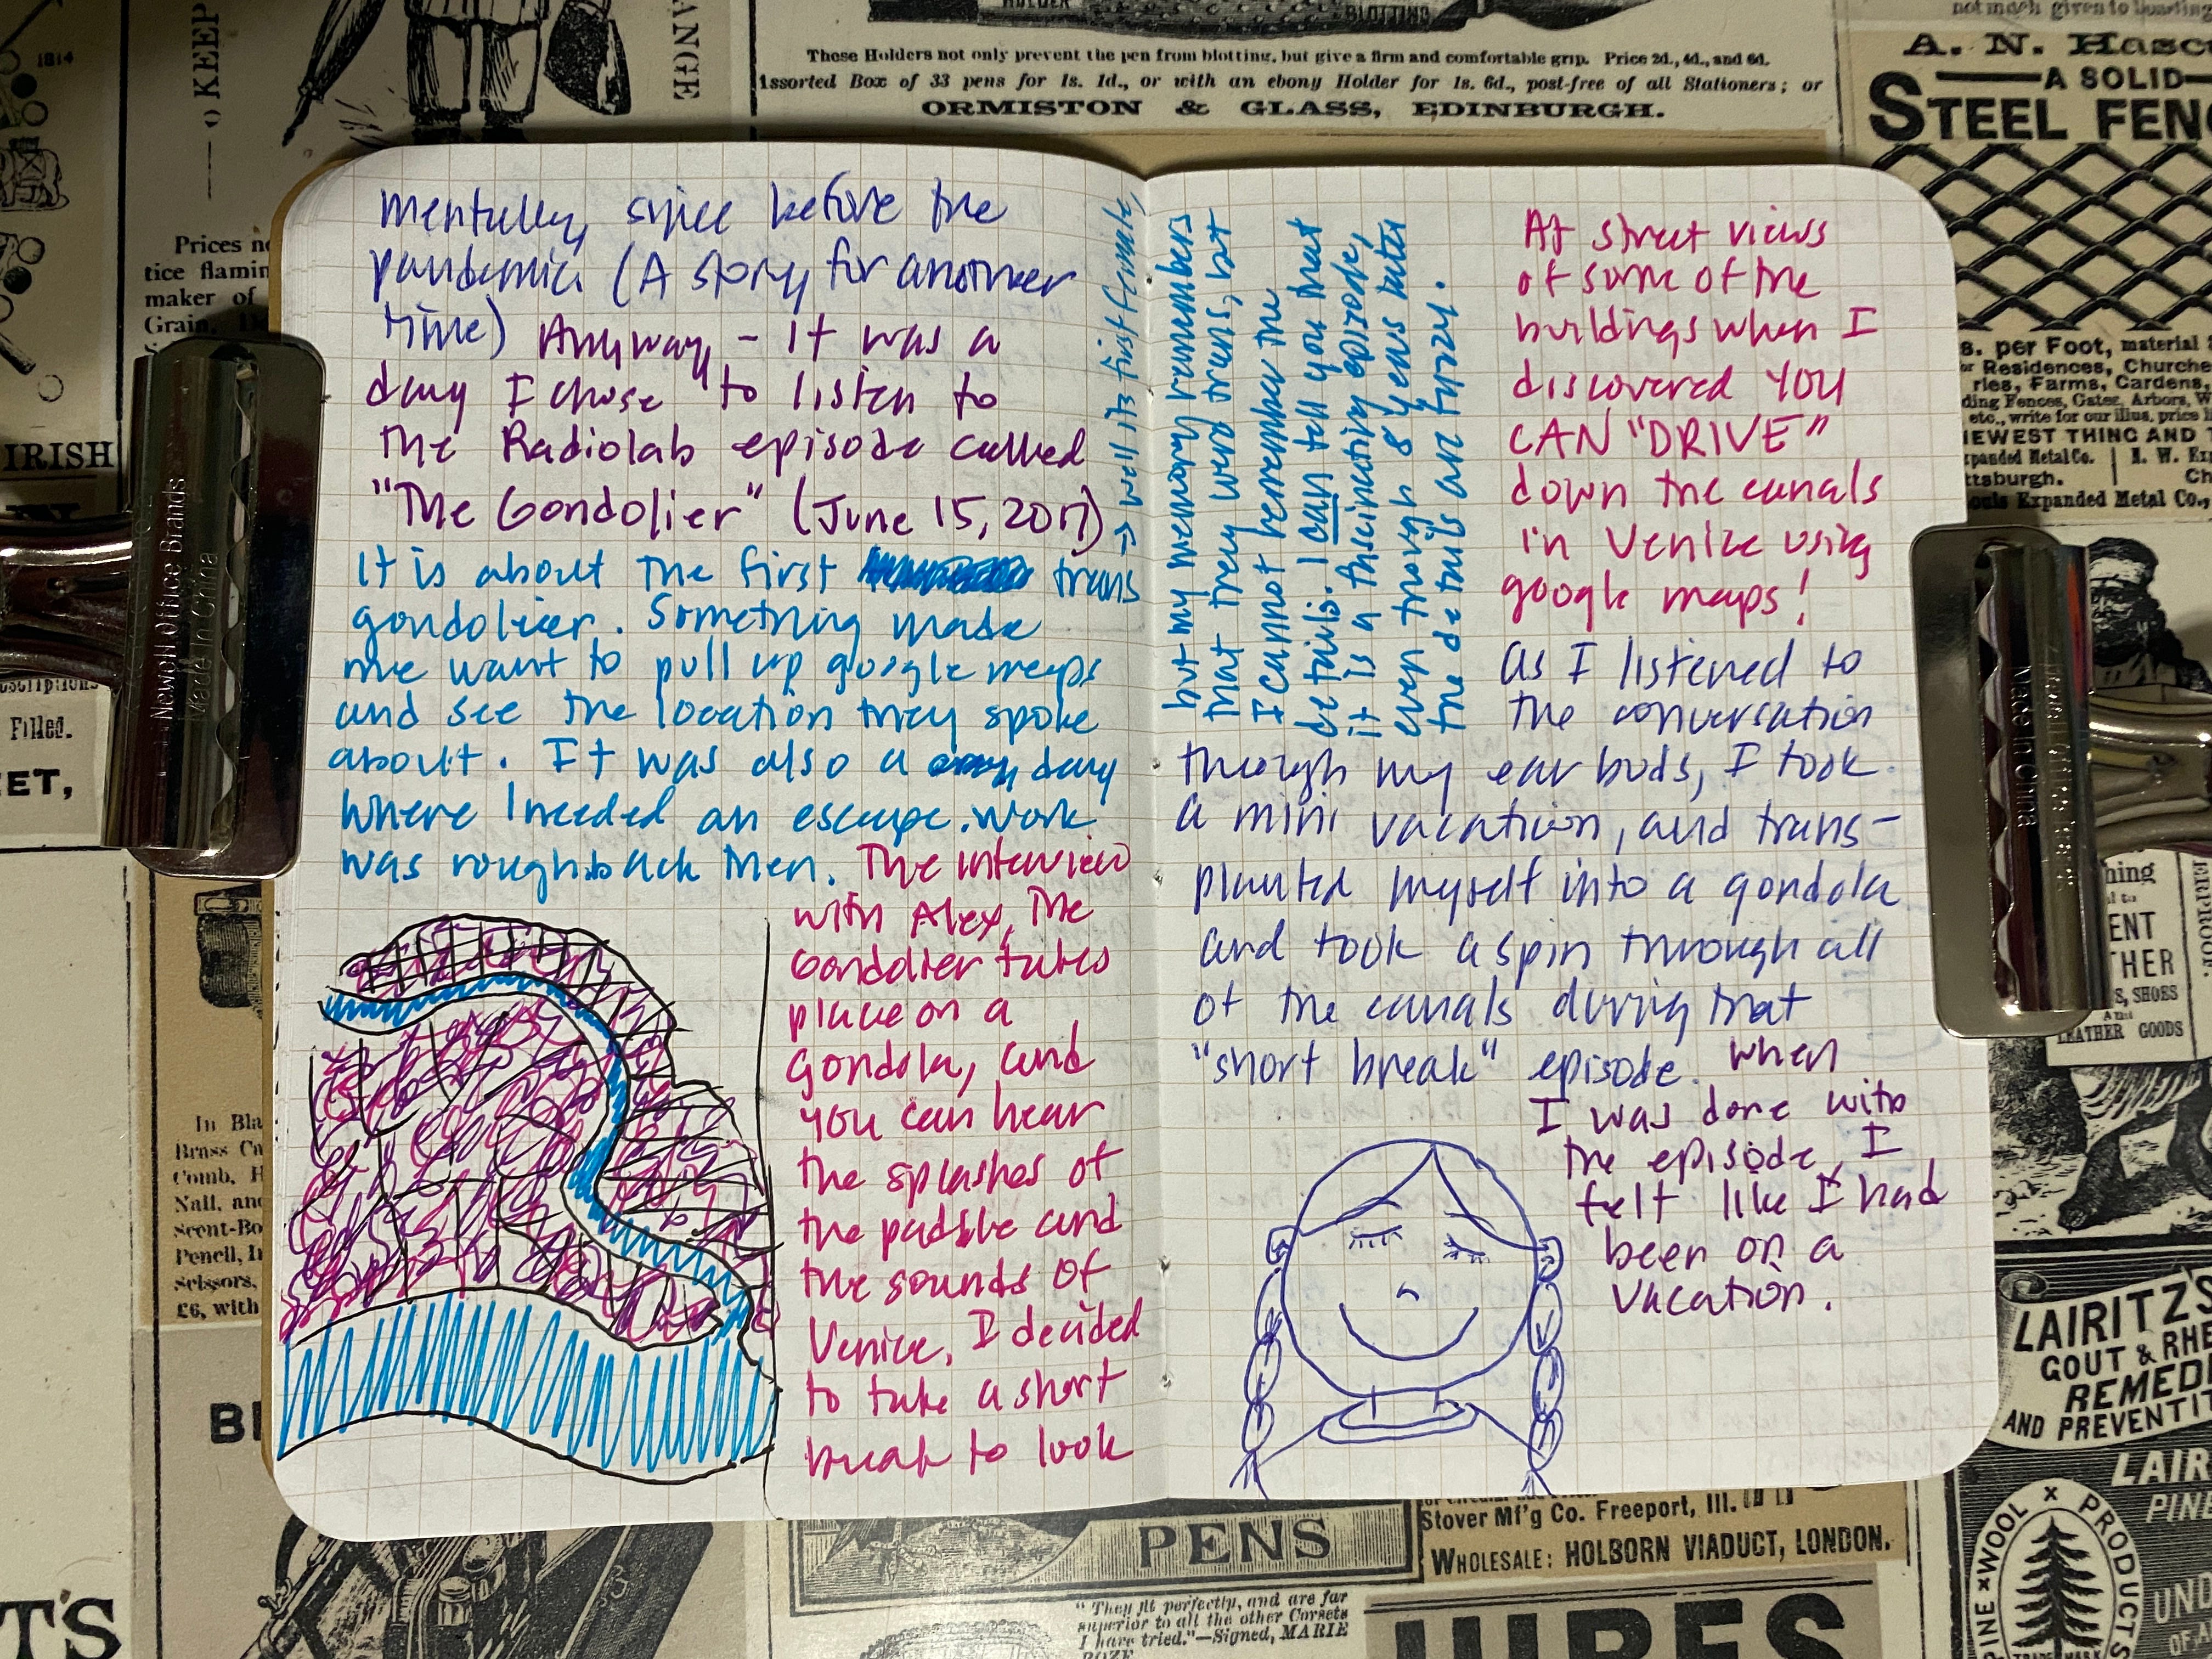 mentally, since before the
pandemic. (A story for another
time) Anyway - it was a
day I chose to listen to
the Radiolab episode called
"The Gondolier" (June 15, 2017)
It is about the first trans
gondolier. Something made
me want to pull up google maps
and see the location they spoke
about. It was also a day
where I needed an escape. Work
was rough back then. The interview
with Alex, the
Gondolier takes
place on a
gondola, and
you can hear
the splashes of
the paddle and
the sounds of
Venice. I decided
to take a short
break to look
→ well its first female,
but my memory remembers
that they were trans, but
I cannot remember the
details. I can tell you that
it is a fascinating episode,
even though 8 years later
the details are fuzzy.
At street views
of some of the
buildings when I
discovered YOU
CAN "DRIVE"
down the canals
in Venice using
google maps!
As I listened to
the conversation
through my ear buds, I took
a mini vacation, and trans-
planted myself into a gondola
and took a spin through all
of the canals during that
"short break" episode. When
I was done with
the episode, I
felt like I had
been on a
vacation.
Newell Office Brands
Made in China
Made in China
1814
KEEP
ANGE
BLOTTING
These Holders not only prevent the pen from blotting, but give a firm and comfortable grip. Price 2d., 4d., and 6d.
Assorted Box of 33 pens for 1s. 1d., or with an ebony Holder for 1s. 6d., post-free of all Stationers; or
ORMISTON & GLASS, EDINBURGH.
not much given to
A. N.
A SOLID
STEEL FEN
s. per Foot, material
Residences, Churche
ries, Farms, Cardens,
ding Fences, Gates, Arbors,
etc., write for our illus. price
NEWEST THING AND
panded Metal Co.
ttsburgh.
Expanded Metal Co.,
Prices
tice flamin
maker of
Grain,
IRISH
Filled.
EET,
In Bla
Brass
Comb,
Nail, and
Scent-Bo
Pencil, I
Scissors,
£6, with
T'S
thing
ENT
THER
S, SHOES
LEATHER GOODS
LAIRITZ'S
GOUT & RHE
REMEDI
AND PREVENTI
LAIR
PIN
PINE WOOL PRODUCTS
TRADE MARK
Stover M'f'g Co. Freeport, Ill.
PENS
WHOLESALE: HOLBORN VIADUCT, LONDON.
"They fit perfectly, and are far
superior to all the other Corsets
I have tried."—Signed, MARIE
ROZE